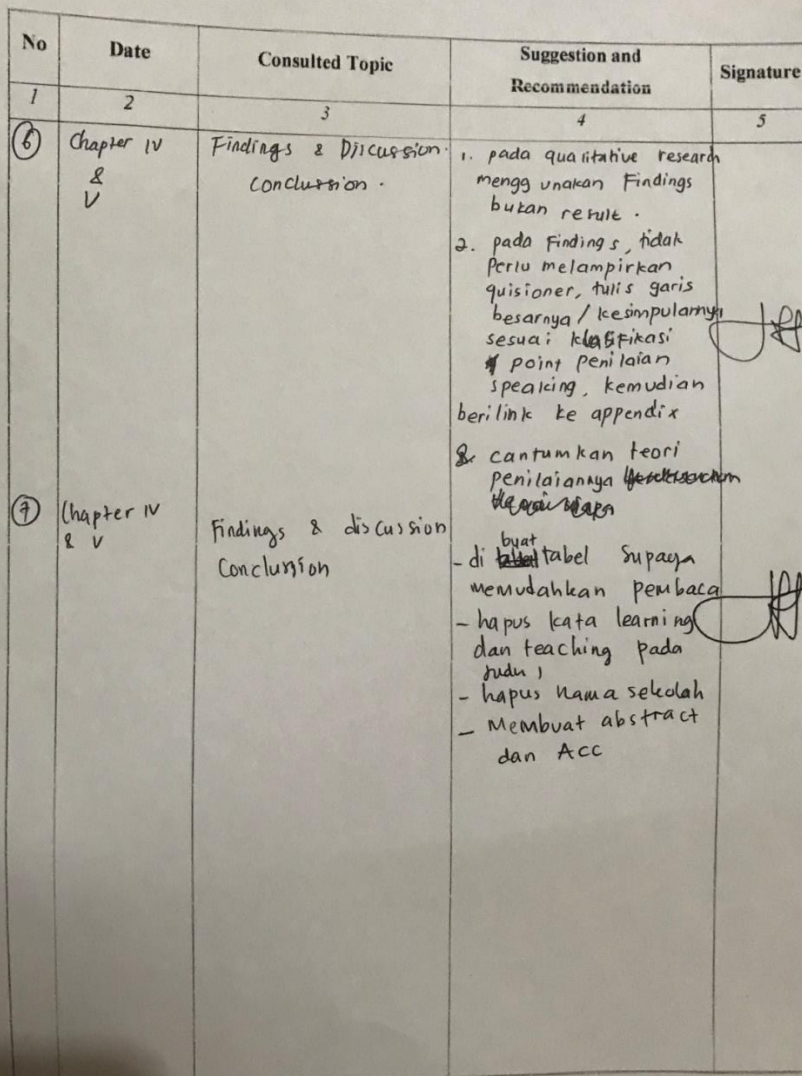 No
Date
Consulted Topic
Suggestion and
Recommendation
Signature
1
2
3
4
5
6
Chapter IV
&
V
Findings & Discussion.
Conclussion.
1. pada qualitative research
menggunakan Findings
bukan result.
2. pada Findings, tidak
Perlu melampirkan
quisioner, tulis garis
besarnya / kesimpulannya
sesuai klasifikasi
point penilaian
speaking, kemudian
beri link ke appendix
& cantumkan teori
penilaiannya
7
Chapter IV
& V
Findings & discussion
Conclussion
- di buat tabel supaya
memudahkan pembaca
- hapus kata learning
dan teaching pada
judul
- hapus nama sekolah
- Membuat abstract
dan ACC